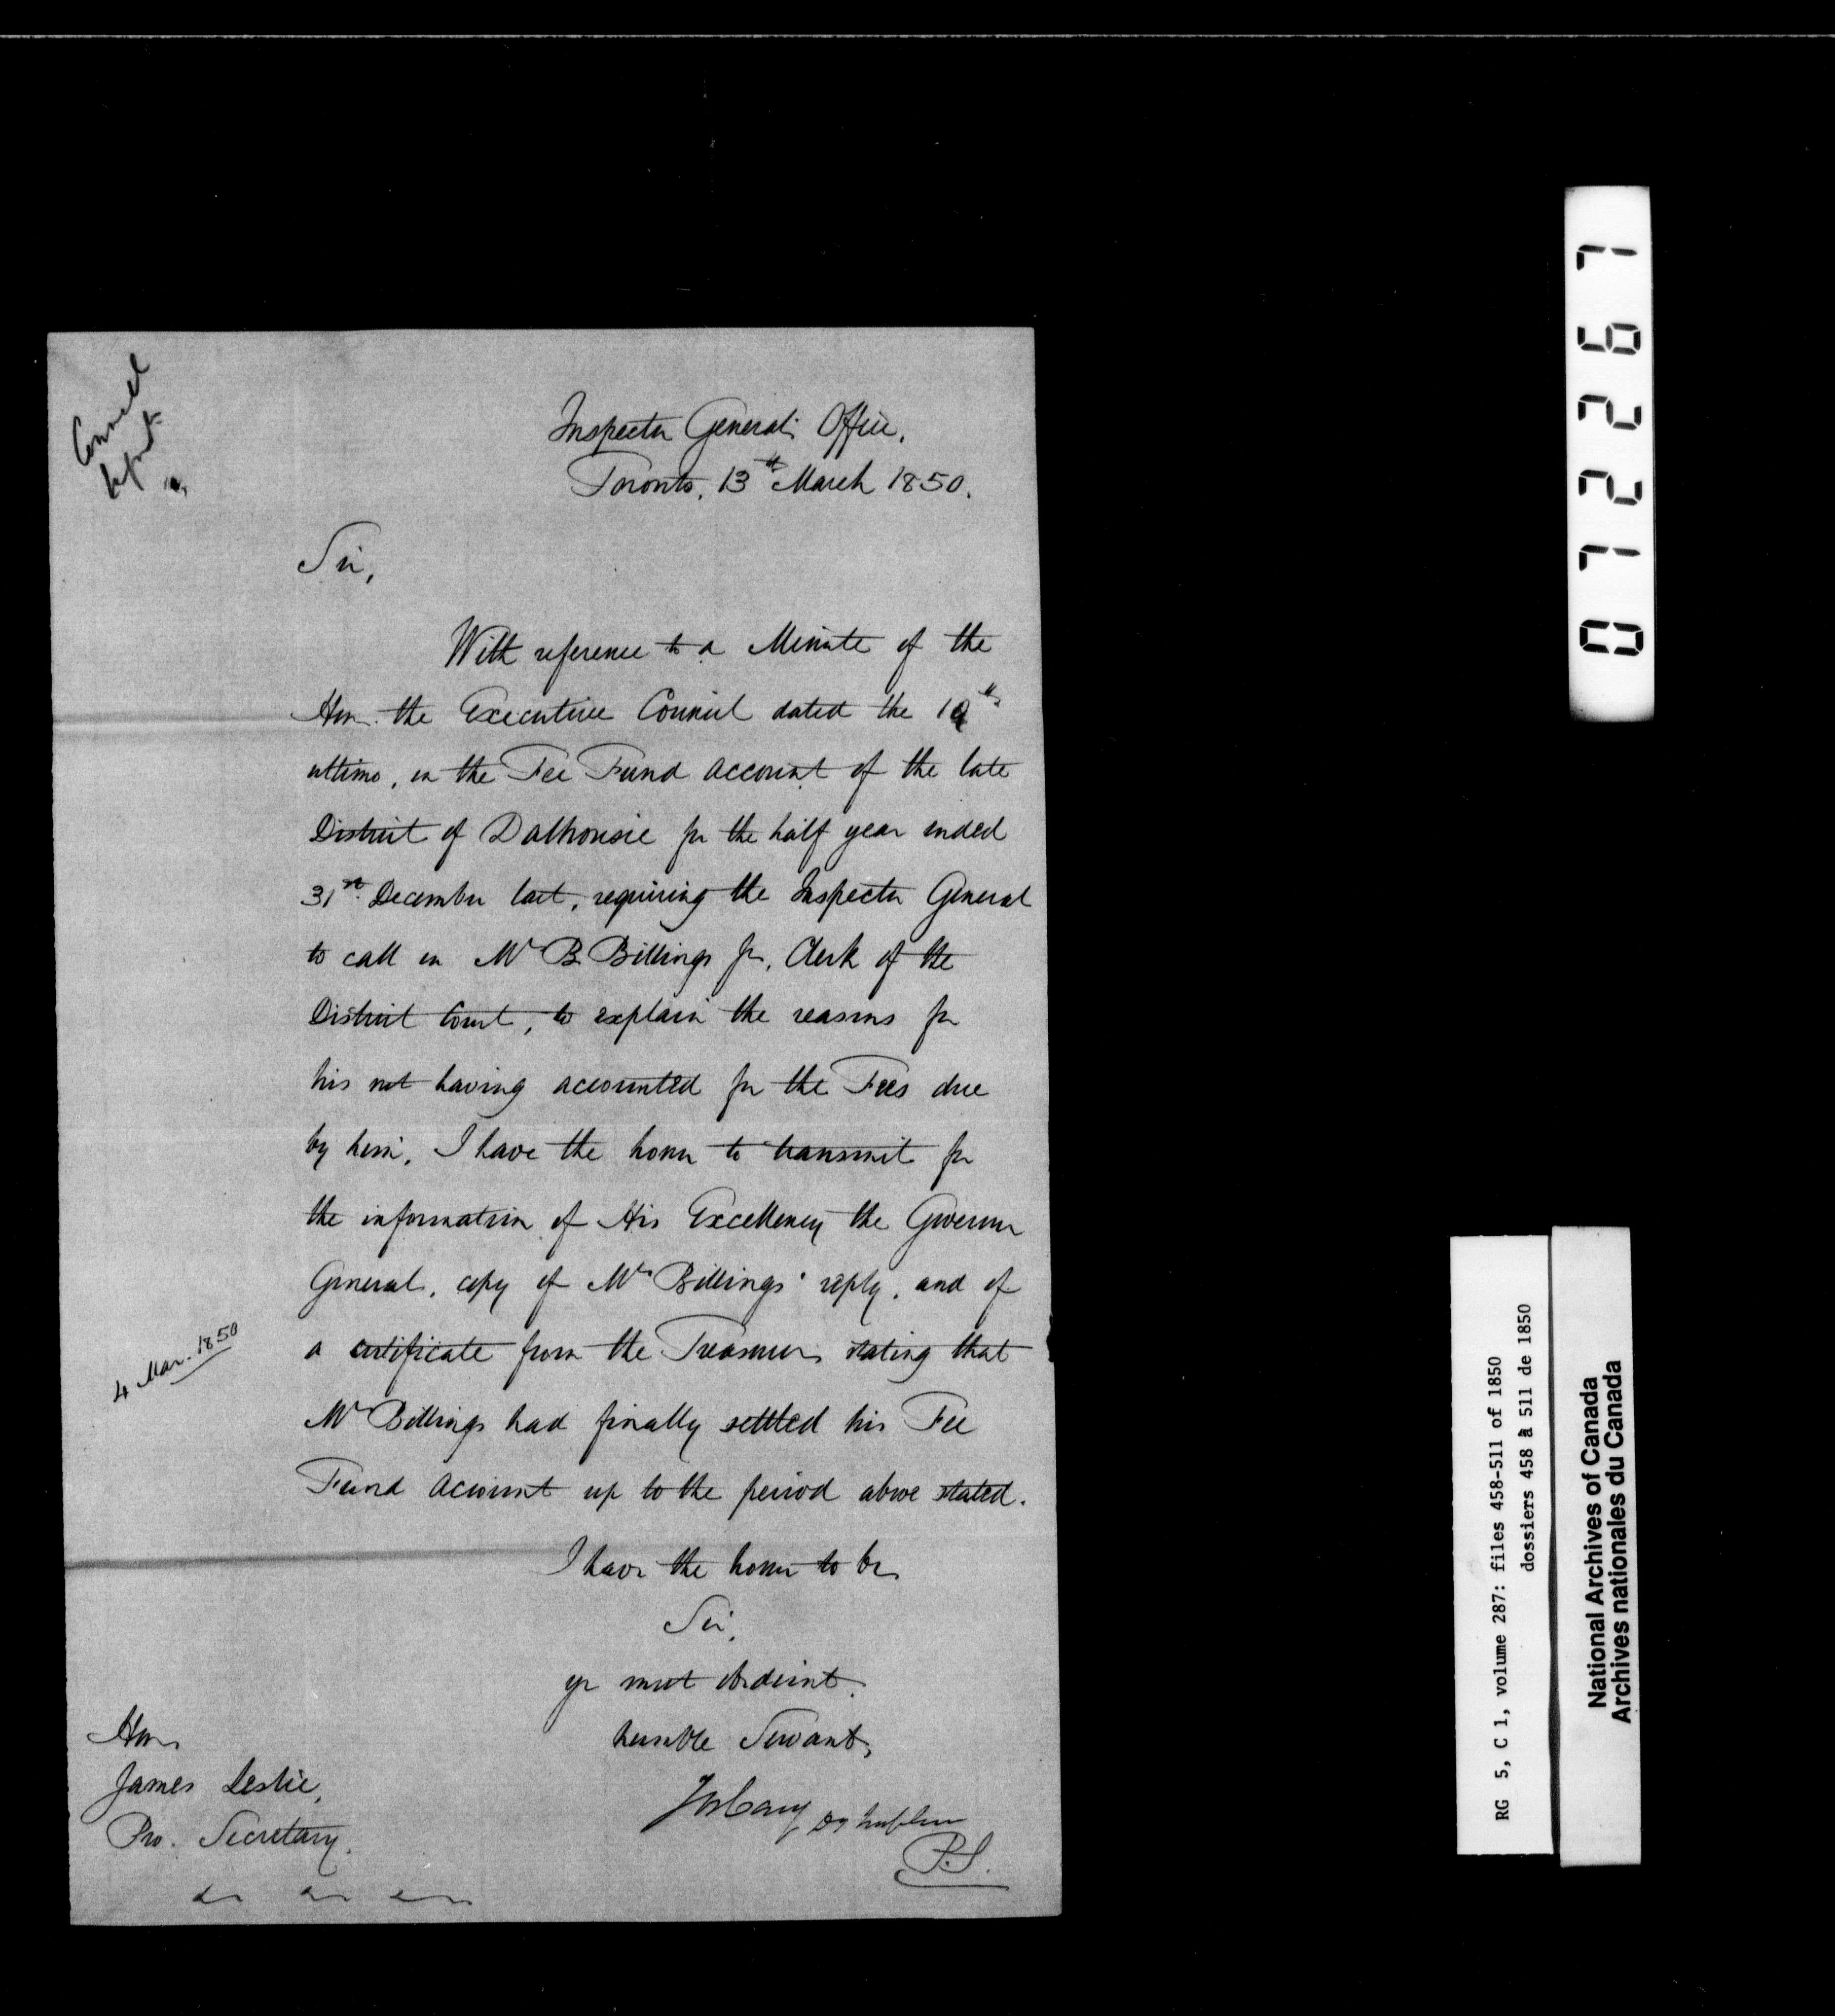 Council
Inspector General's Office,
Toronto, 13th March 1850.
Sir,
With reference to a Minute of the
Hon. the Executive Council dated the 19th
ultimo, on the Fee Fund Account of the late
District of Dalhousie for the half year ended
31st December last, requiring the Inspector General
to call on Mr B. Billings Jr, Clerk of the
District Court, to explain the reasons for
his not having accounted for the Fees due
by him, I have the honor to transmit for
the information of His Excellency the Governor
General, copy of Mr Billings' reply, and of
4 Mar. 1850
a certificate from the Treasurer stating that
Mr Billings had finally settled his Fee
Fund Account up to the period above stated.
I have the honor to be
Sir,
yr most obedient
humble Servant,
Jos Cary Dy
P.S.
Hon
James Leslie,
Pro. Secretary.
072267
RG 5, C 1, volume 287: files 458-511 of 1850
dossiers 458 à 511 de 1850
National Archives of Canada
Archives nationales du Canada